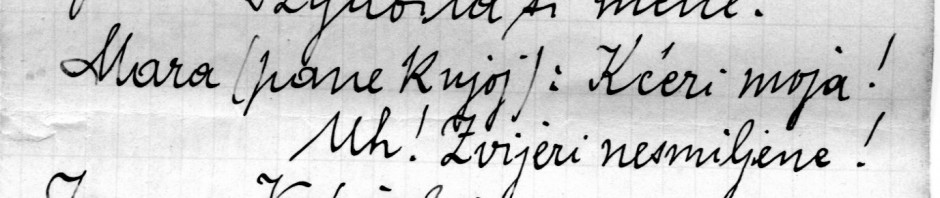 si mene.
Mara (pane k njoj): Kćeri moja!
Uh! Zvijeri nesmiljene!